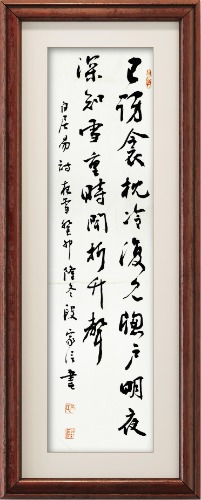 已訝衾枕冷復見牕戶明夜
深知雪重時聞折竹聲
白居易詩夜雪癸卯隆冬段家書